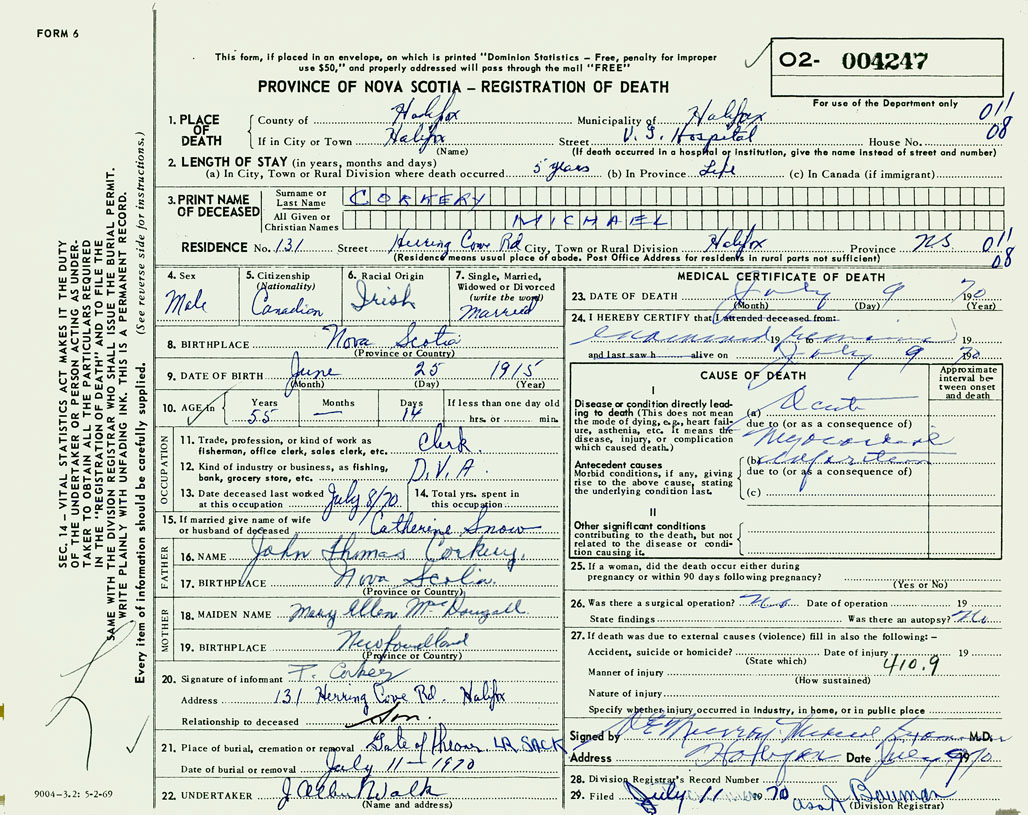 FORM 6
This form, if placed in an envelope, on which is printed "Dominion Statistics – Free, penalty for improper
use $50," and properly addressed will pass through the mail "FREE"
O2- 004247
For use of the Department only
PROVINCE OF NOVA SCOTIA – REGISTRATION OF DEATH
1. PLACE OF DEATH
County of Halifax Municipality of Halifax 011
If in City or Town Halifax Street V. G. Hospital House No. 08
(Name) (If death occurred in a hospital or institution, give the name instead of street and number)
2. LENGTH OF STAY (in years, months and days)
(a) In City, Town or Rural Division where death occurred 5 years (b) In Province Life (c) In Canada (if immigrant)
3. PRINT NAME OF DECEASED
Surname or Last Name CORKERY
All Given or Christian Names MICHAEL
RESIDENCE No. 131 Street Herring Cove Rd City, Town or Rural Division Halifax Province NS 011
(Residence means usual place of abode. Post Office Address for residents in rural parts not sufficient) 08
4. Sex
Male
5. Citizenship
(Nationality)
Canadian
6. Racial Origin
Irish
7. Single, Married,
Widowed or Divorced
(write the word)
Married
8. BIRTHPLACE Nova Scotia
(Province or Country)
9. DATE OF BIRTH June 25 1915
(Month) (Day) (Year)
10. AGE in Years Months Days If less than one day old
55 — 14 hrs. or min.
OCCUPATION
11. Trade, profession, or kind of work as
fisherman, office clerk, sales clerk, etc. Clerk
12. Kind of industry or business, as fishing,
bank, grocery store, etc. D.V.A.
13. Date deceased last worked at this occupation July 8/70
14. Total yrs. spent in this occupation
15. If married give name of wife
or husband of deceased Catherine Snow
FATHER
16. NAME John Thomas Corkery.
17. BIRTHPLACE Nova Scotia.
(Province or Country)
MOTHER
18. MAIDEN NAME Mary Ellen MacDougall
19. BIRTHPLACE Newfoundland
(Province or Country)
20. Signature of informant P. Corkery
Address 131 Herring Cove Rd. Halifax
Relationship to deceased Son.
21. Place of burial, cremation or removal Gate of Heaven LR SACK
Date of burial or removal July 11 – 1970
22. UNDERTAKER J Allen Walk
(Name and address)
MEDICAL CERTIFICATE OF DEATH
23. DATE OF DEATH July 9 1970
(Month) (Day) (Year)
24. I HEREBY CERTIFY that I attended deceased from:
examined remains 19 to 19
and last saw h alive on July 9 1970
CAUSE OF DEATH
Approximate
interval be-
tween onset
and death
I
Disease or condition directly lead-
ing to death (This does not mean
the mode of dying, e.g., heart fail-
ure, asthenia, etc. It means the
disease, injury, or complication
which caused death.)
(a) Acute
due to (or as a consequence of)
Myocardial
Antecedent causes
Morbid conditions, if any, giving
rise to the above cause, stating
the underlying condition last.
(b) infarction
due to (or as a consequence of)
(c)
II
Other significant conditions
contributing to the death, but not
related to the disease or condi-
tion causing it.
25. If a woman, did the death occur either during
pregnancy or within 90 days following pregnancy?
(Yes or No)
26. Was there a surgical operation? No Date of operation 19
State findings Was there an autopsy? No
27. If death was due to external causes (violence) fill in also the following: –
Accident, suicide or homicide? Date of injury 19
(State which) 410.9
Manner of injury
(How sustained)
Nature of injury
Specify whether injury occurred in industry, in home, or in public place
Signed by D E Murray Medical Examiner M.D.
Address Halifax Date July 9 1970
28. Division Registrar's Record Number
29. Filed July 11 1970 Bouman
(Division Registrar)
SEC. 14 – VITAL STATISTICS ACT MAKES IT THE DUTY
OF THE UNDERTAKER OR PERSON ACTING AS UNDER-
TAKER TO OBTAIN ALL THE PARTICULARS REQUIRED
IN THE "REGISTRATION OF DEATH" AND TO FILE THE
SAME WITH THE DIVISION REGISTRAR WHO SHALL ISSUE THE BURIAL PERMIT.
WRITE PLAINLY WITH UNFADING INK. THIS IS A PERMANENT RECORD.
Every item of information should be carefully supplied. (See reverse side for instructions.)
9004–3.2: 5-2-69